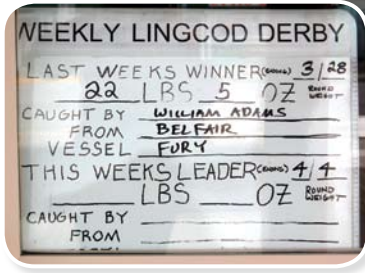 WEEKLY LINGCOD DERBY
LAST WEEKS WINNER (ENDING) 3/28
22 LBS 5 OZ ROUND WEIGHT
CAUGHT BY WILLIAM ADAMS
FROM BELFAIR
VESSEL FURY
THIS WEEKS LEADER (ENDING) 4/4
LBS OZ ROUND WEIGHT
CAUGHT BY
FROM